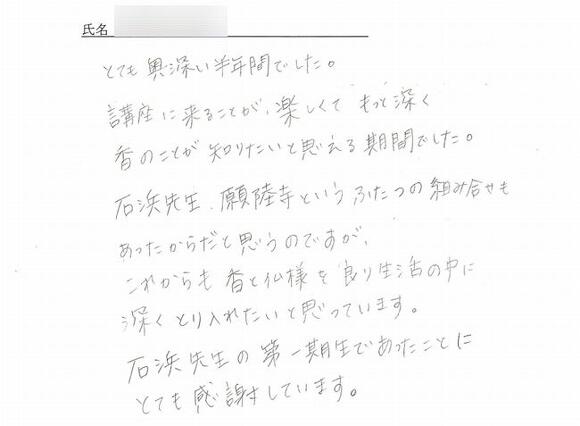 氏名
とても奥深い半年間でした。
講座に来ることが、楽しくて もっと深く
香のことが 知りたいと思える期間でした。
石浜先生、願陸寺という ふたつの組み合せも
あったからだと思うのですが、
これからも 香と仏様を 良り生活の中に
深く とり入れたいと思っています。
石浜先生の第一期生であったことに
とても感謝しています。